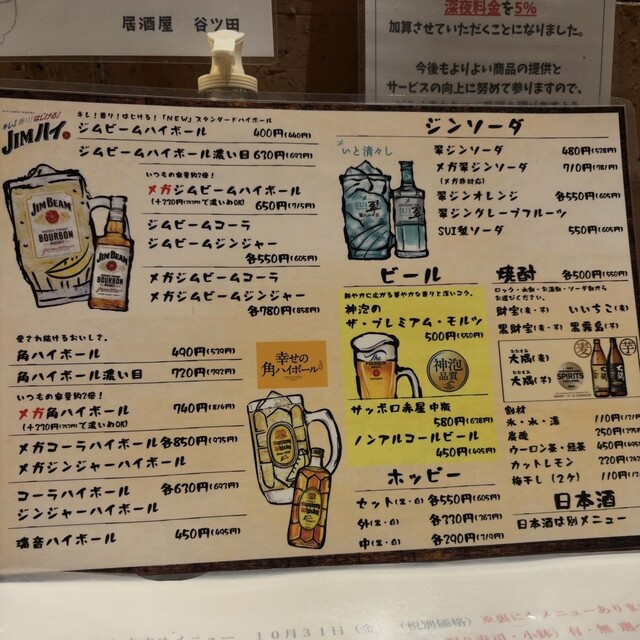 居酒屋 谷ツ田
深夜料金を5%
加算させていただくことになりました。
今後もよりよい商品の提供と
サービスの向上に努めて参りますので、
キレ！香り！はじける！
JIMハイ。
キレ！香り！はじける！「NEW」スタンダードハイボール
ジムビームハイボール 400円(440円)
ジムビームハイボール濃い目 630円(693円)
いつもの容量約2倍！
メガジムビームハイボール
650円(715円)
ジムビームコーラ
ジムビームジンジャー
各550円(605円)
メガジムビームコーラ
メガジムビームジンジャー
各780円(858円)
JIM BEAM
BOURBON
JIM BEAM
BOURBON
愛され続けるおいしさ。
角ハイボール 490円(539円)
角ハイボール濃い目 720円(792円)
いつもの容量約2倍！
メガ角ハイボール 740円(814円)
メガコーラハイボール 各850円(935円)
メガジンジャーハイボール
コーラハイボール 各630円(693円)
ジンジャーハイボール
瑞音ハイボール 450円(495円)
幸せの
角ハイボール
ジンソーダ
いと清々し
翠ジンソーダ 480円(528円)
メガ翠ジンソーダ 710円(781円)
翠ジンオレンジ 各550円(605円)
翠ジングレープフルーツ
SUI梨ソーダ 550円(605円)
SUI
翠
ビール
神泡の
ザ・プレミアム・モルツ
500円(550円)
神泡
品質
サッポロ赤星中瓶
580円(638円)
ノンアルコールビール
450円(495円)
ホッピー
セット(黒・白) 各550円(605円)
外(黒・白) 各330円(363円)
中(黒・白) 各290円(319円)
焼酎 各500円(550円)
ロック・水割・お湯割・ソーダ割から
お選びください。
財宝(麦・芋) いいちこ(麦)
黒財宝(麦・芋) 黒霧島(芋)
大隅(麦)
大隅(芋)
麦
芋
SPIRITS
割材
氷・水・湯 110円
炭酸
ウーロン茶・緑茶 450円
カットレモン 220円
梅干し(2ケ) 110円
日本酒
日本酒は別メニュー
10月31日(金) (税別価格)